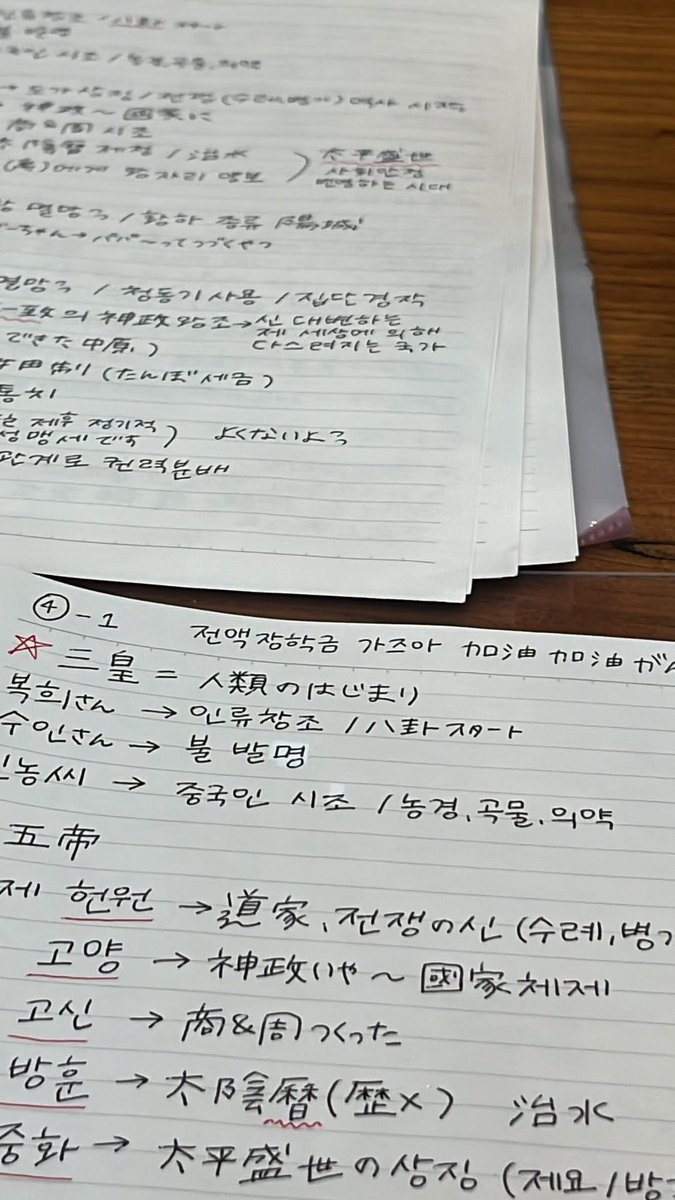 (수레,병기) 역사 시작
神政～國家に
商&周 시조
太陰曆 제정 / 治水
에게 왕자리 양보
太平盛世
사회안정
번영하는 시대
멸망
/ 황하 중류 陽城
멸망 / 청동기사용 / 집단경작
の神政왕조→신 대변하는
제 세상에 의해
다스려지는 국가
できた中原.)
(たんぼ세금)
통치
제후 정기적
성맹세です)
よくないよう
관계로 권력분배
④-1 전액장학금 가즈아 加油 加油 がん
☆三皇 = 人類のはじまり
복희さん → 인류창조 / 八卦スタート
수인さん → 불 발명
농씨 → 중국인 시조 / 농경,곡물,의약
五帝
제 헌원 → 道家, 전쟁の신 (수레,병기
고양 → 神政いや～ 國家체제
고신 → 商&周つくった
방훈 → 太陰曆(歴×) 治水
중화 → 太平盛世の상징 (제요/방